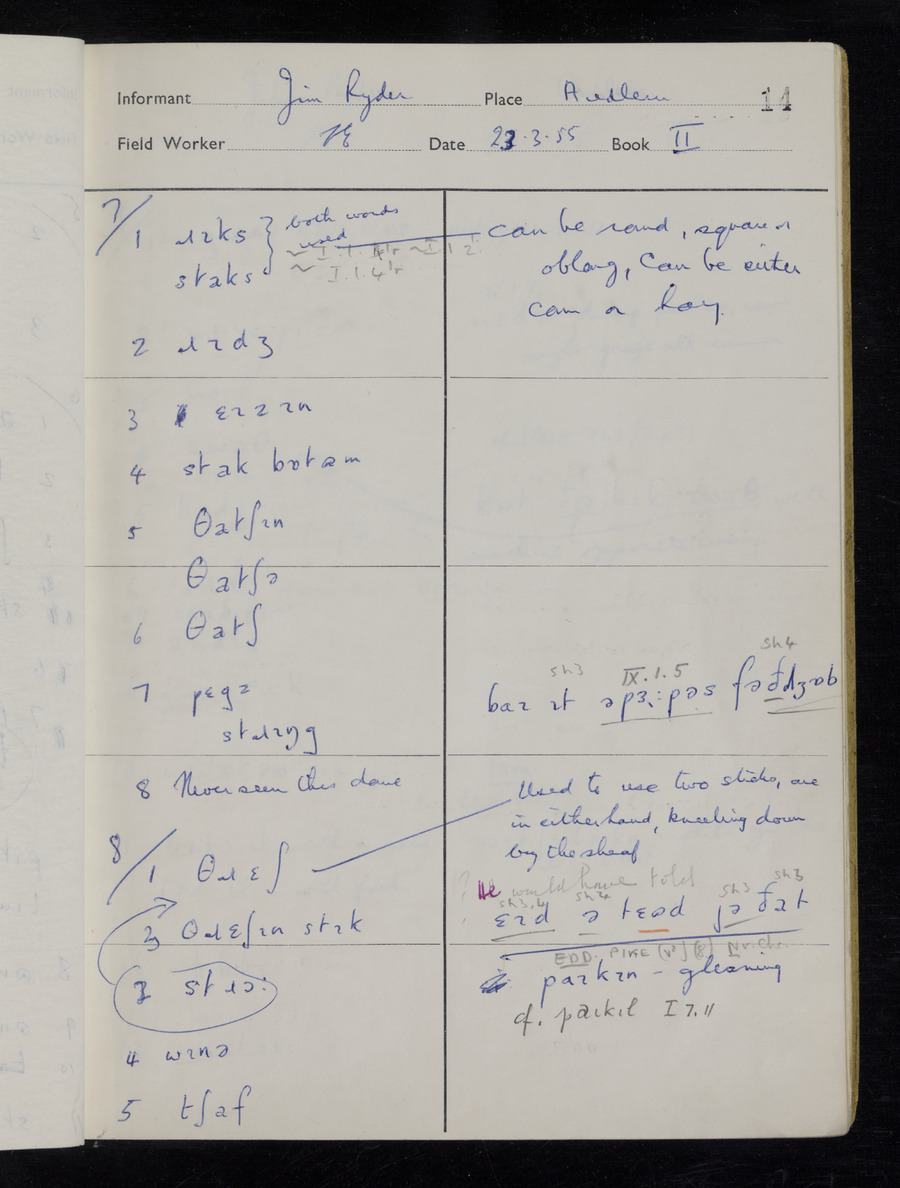 Informant Jim Ryder Place Audlem 14
Field Worker Date 23.3.55 Book II
7/
1 ɹɪks } both words used
staks
~ I.1.4
can be round, square or
oblong, Can be either
corn or hay.
2 ɹɪdʒ
3 ɛɪzɪn
4 stak bɒtəm
5 θatʃɪn
θatʃə
6 θatʃ
7 pɛgz
stɹɪŋg
sh3 IX.1.5 sh4
baɪ ɪt
8 Never seen this done
8/
1 θɹɛʃ
Used to use two sticks, one
in either hand, kneeling down
by the sheaf
3 θɹɛʃɪn stɪk
? He would have told
sh3,4 sh4 sh3 sh3
ɛɪd ə tɛəd jə ðat
2 stɹɔ:
EDD. PIKE (v) (8) N.W.Ch.
paɪkɪn - gleaning
cf. paɪkɪl I 7.11
4 wɪnə
5 tʃaf